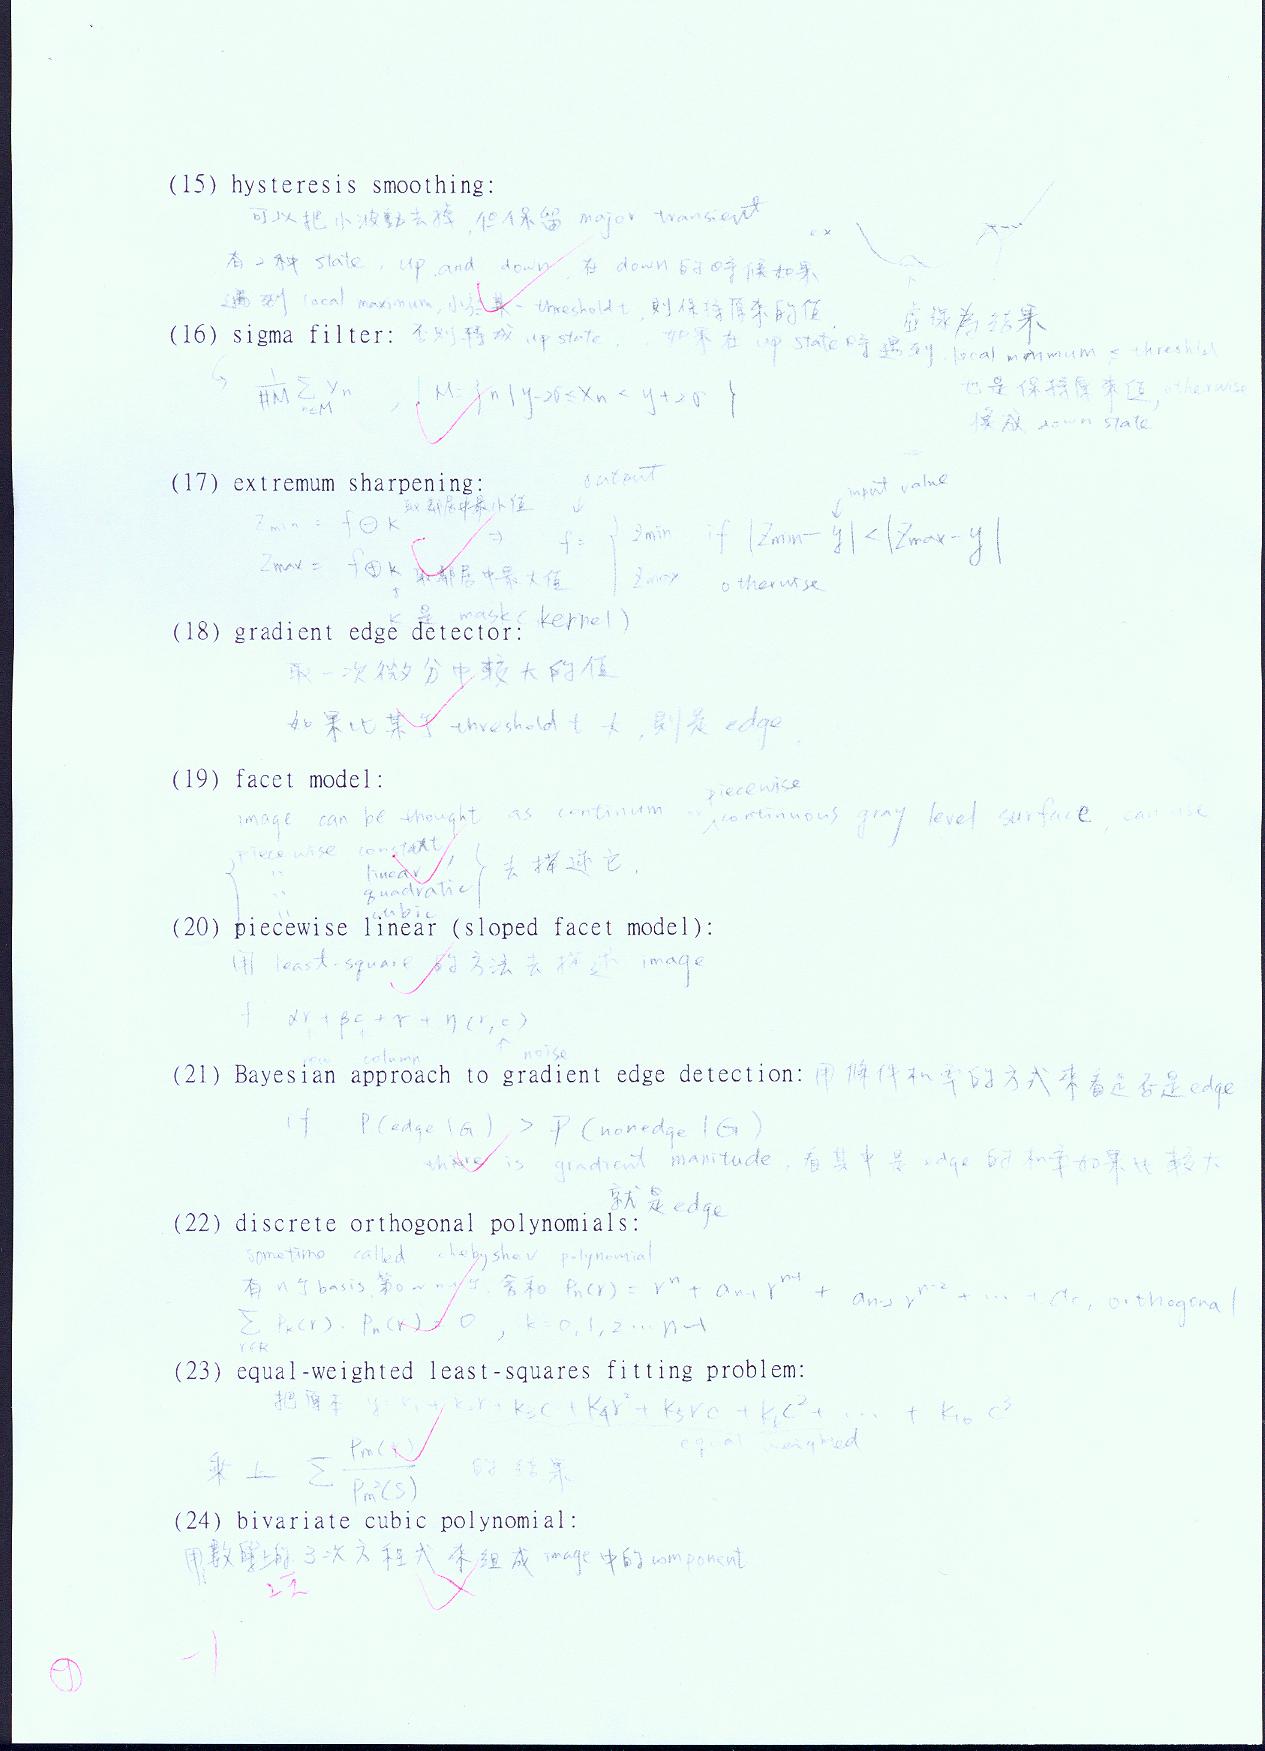 (15) hysteresis smoothing:
可以把小波動去掉, 但保留 major transient
ex
有2種 state, up and down, 在 down 的時候如果
遇到 local maximum, 小於某一 threshold t, 則保持原來的值,
虛線為結果
(16) sigma filter: 否則轉成 up state, 如果在 up state 時遇到 local minimum < threshold
也是保持原來值, otherwise
換成 down state
1/#M Σ n∈M yn , M = { n | y-2σ ≤ xn < y+2σ }
(17) extremum sharpening:
output
input value
Zmin = f ⊖ k 取鄰居中最小值
⇒ f = { Zmin if |Zmin - y| < |Zmax - y|
Zmax = f ⊕ k 取鄰居中最大值
Zmax otherwise
k 是 mask (kernel)
(18) gradient edge detector:
取一次微分中較大的值
如果比某个 threshold t 大, 則是 edge.
(19) facet model:
image can be thought as continum or piecewise continuous gray level surface, can use
{ piecewise constant
" linear
" quadratic
" cubic } 去描述它.
(20) piecewise linear (sloped facet model):
用 least-square 的方法去描述 image
f αr + βc + γ + η(r,c)
row column noise
(21) Bayesian approach to gradient edge detection: 用條件机率的方式來看是否是 edge
if P(edge | G) > P(nonedge | G)
there is gradient manitude, 看其中是 edge 的机率如果比較大
就是 edge
(22) discrete orthogonal polynomials:
sometime called chebyshev polynomial
有 n个 basis, 第0~n-1个, 會和 Pn(r) = r^n + an-1 r^n-1 + an-2 r^n-2 + ... + a0, orthogonal
Σ r∈R Pk(r) · Pn(r) = 0 , k = 0, 1, 2 ... n-1
(23) equal-weighted least-squares fitting problem:
把原來 y = k1 + k2r + k3c + k4r² + k5rc + k6c² + ... + k10 c³
equal weighted
乘上 Σ Pm(r) / Pm²(s) 的結果
(24) bivariate cubic polynomial:
用數學上的3次方程式來組成 image 中的 component
-1